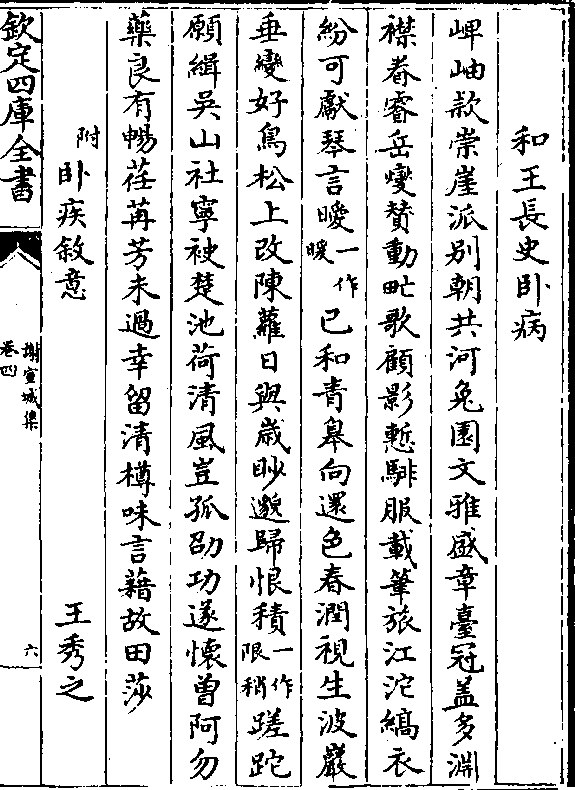 和王長史卧病
岬岫款崇崖派别朝共河兔園文雅盛章臺冠盖多淵
襟眷睿岳夔賛動甿歌顧影慙騑服載筆旅江沱縞衣
紛可獻琴言曖一作暖已和青臯向還色春潤視生波巖
垂變好鳥松上改陳蘿日與歲眇邈歸恨積一作限稍蹉跎
願緝吳山社寧被楚池荷清風豈孤劭功遂懷曽阿勿
藥良有暢荏苒芳未過幸留清樽味言藉故田莎
附卧疾敘意 王秀之
欽定四庫全書
謝宣城集
卷四
六